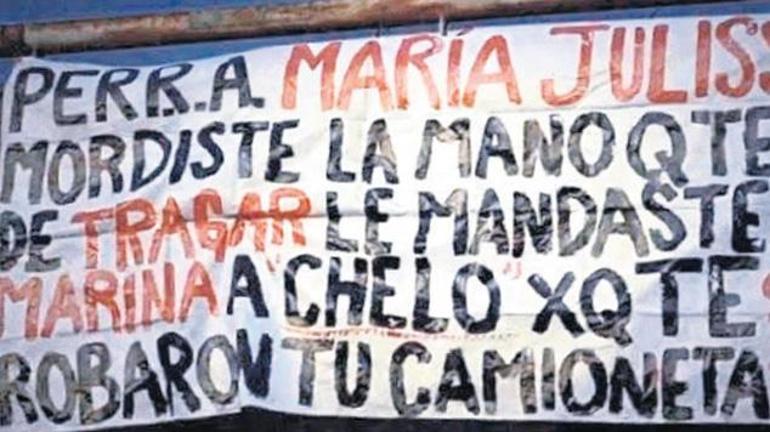 PERR.A. MARÍA JULISS
MORDISTE LA MANO Q TE
DE TRAGAR LE MANDASTE
MARINA A "CHELO" XQ TE
ROBARON TU CAMIONETA